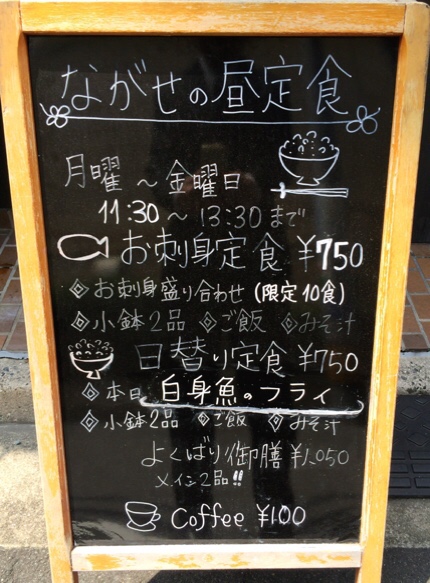 ながせの昼定食
月曜～金曜日
11:30～13:30まで
お刺身定食 ¥750
◈お刺身盛り合わせ (限定10食)
◈小鉢2品 ◈ご飯 ◈みそ汁
日替り定食 ¥750
◈本日 白身魚のフライ
◈小鉢2品 ◈ご飯 ◈みそ汁
よくばり御膳 ¥1,050
メイン2品!!
Coffee ¥100